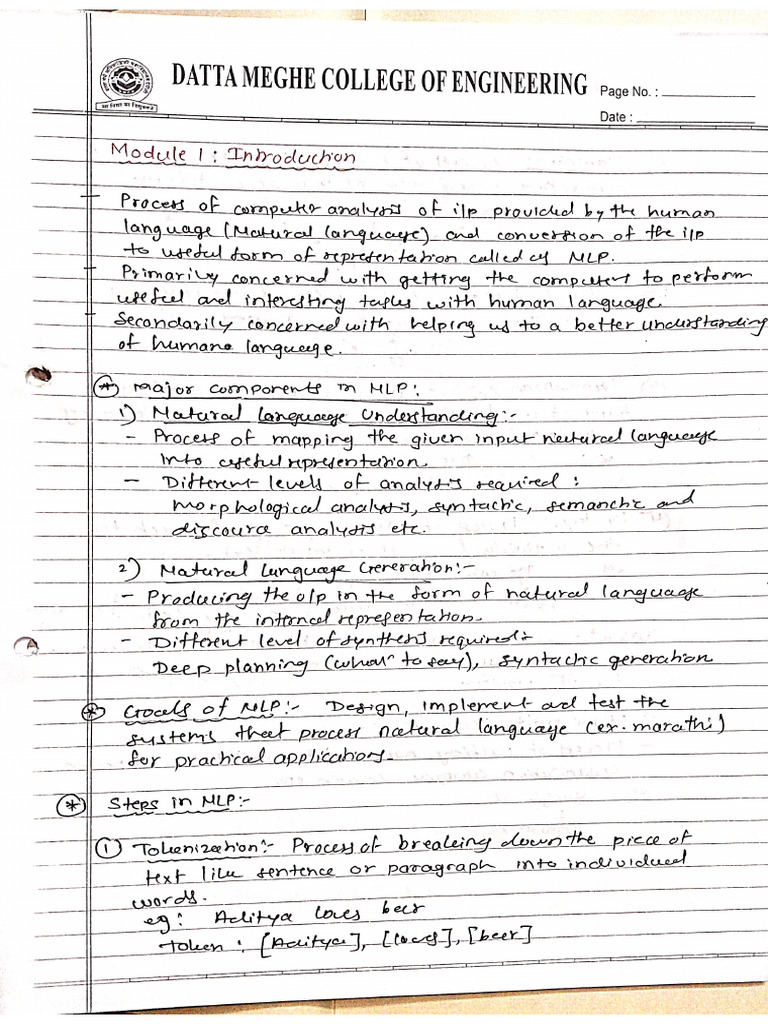 DATTA MEGHE COLLEGE OF ENGINEERING
Page No. :
Date :
Module 1 : Introduction
- Process of computer analysis of i/p provided by the human
language (Natural language) and conversion of the i/p
to useful form of representation called as NLP.
- Primarily concerned with getting the computers to perform
useful and interesting tasks with human language.
- Secondarily concerned with helping us to a better understanding
of human language.
* Major components in NLP:
1) Natural Language Understanding:-
- Process of mapping the given input natural language
into useful representation.
- Different levels of analysis required :
morphological analysis, syntactic, semanctic and
discource analysis etc.
2) Natural Language Generation:-
- Producing the o/p in the form of natural language
from the internal representation.
- Different level of synthesis required:
Deep planning (what to say), syntactic generation
* Goals of NLP:- Design, implement and test the
systems that process natural language (ex. marathi)
for practical applications.
* Steps in NLP:-
1 Tokenization:- Process of breaking down the piece of
text like sentence or paragraph into individual
words.
eg: Aditya loves beer
Token : [Aditya], [loves], [beer]